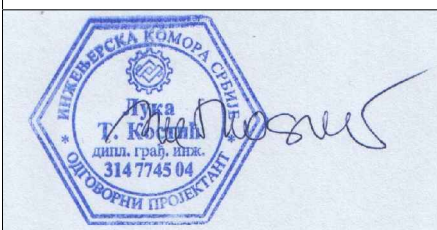 ИНЖЕЊЕРСКА КОМОРА СРБИЈЕ
Лука
Т.
дипл. грађ. инж.
314 7745 04
* ОДГОВОРНИ ПРОЈЕКТАНТ *